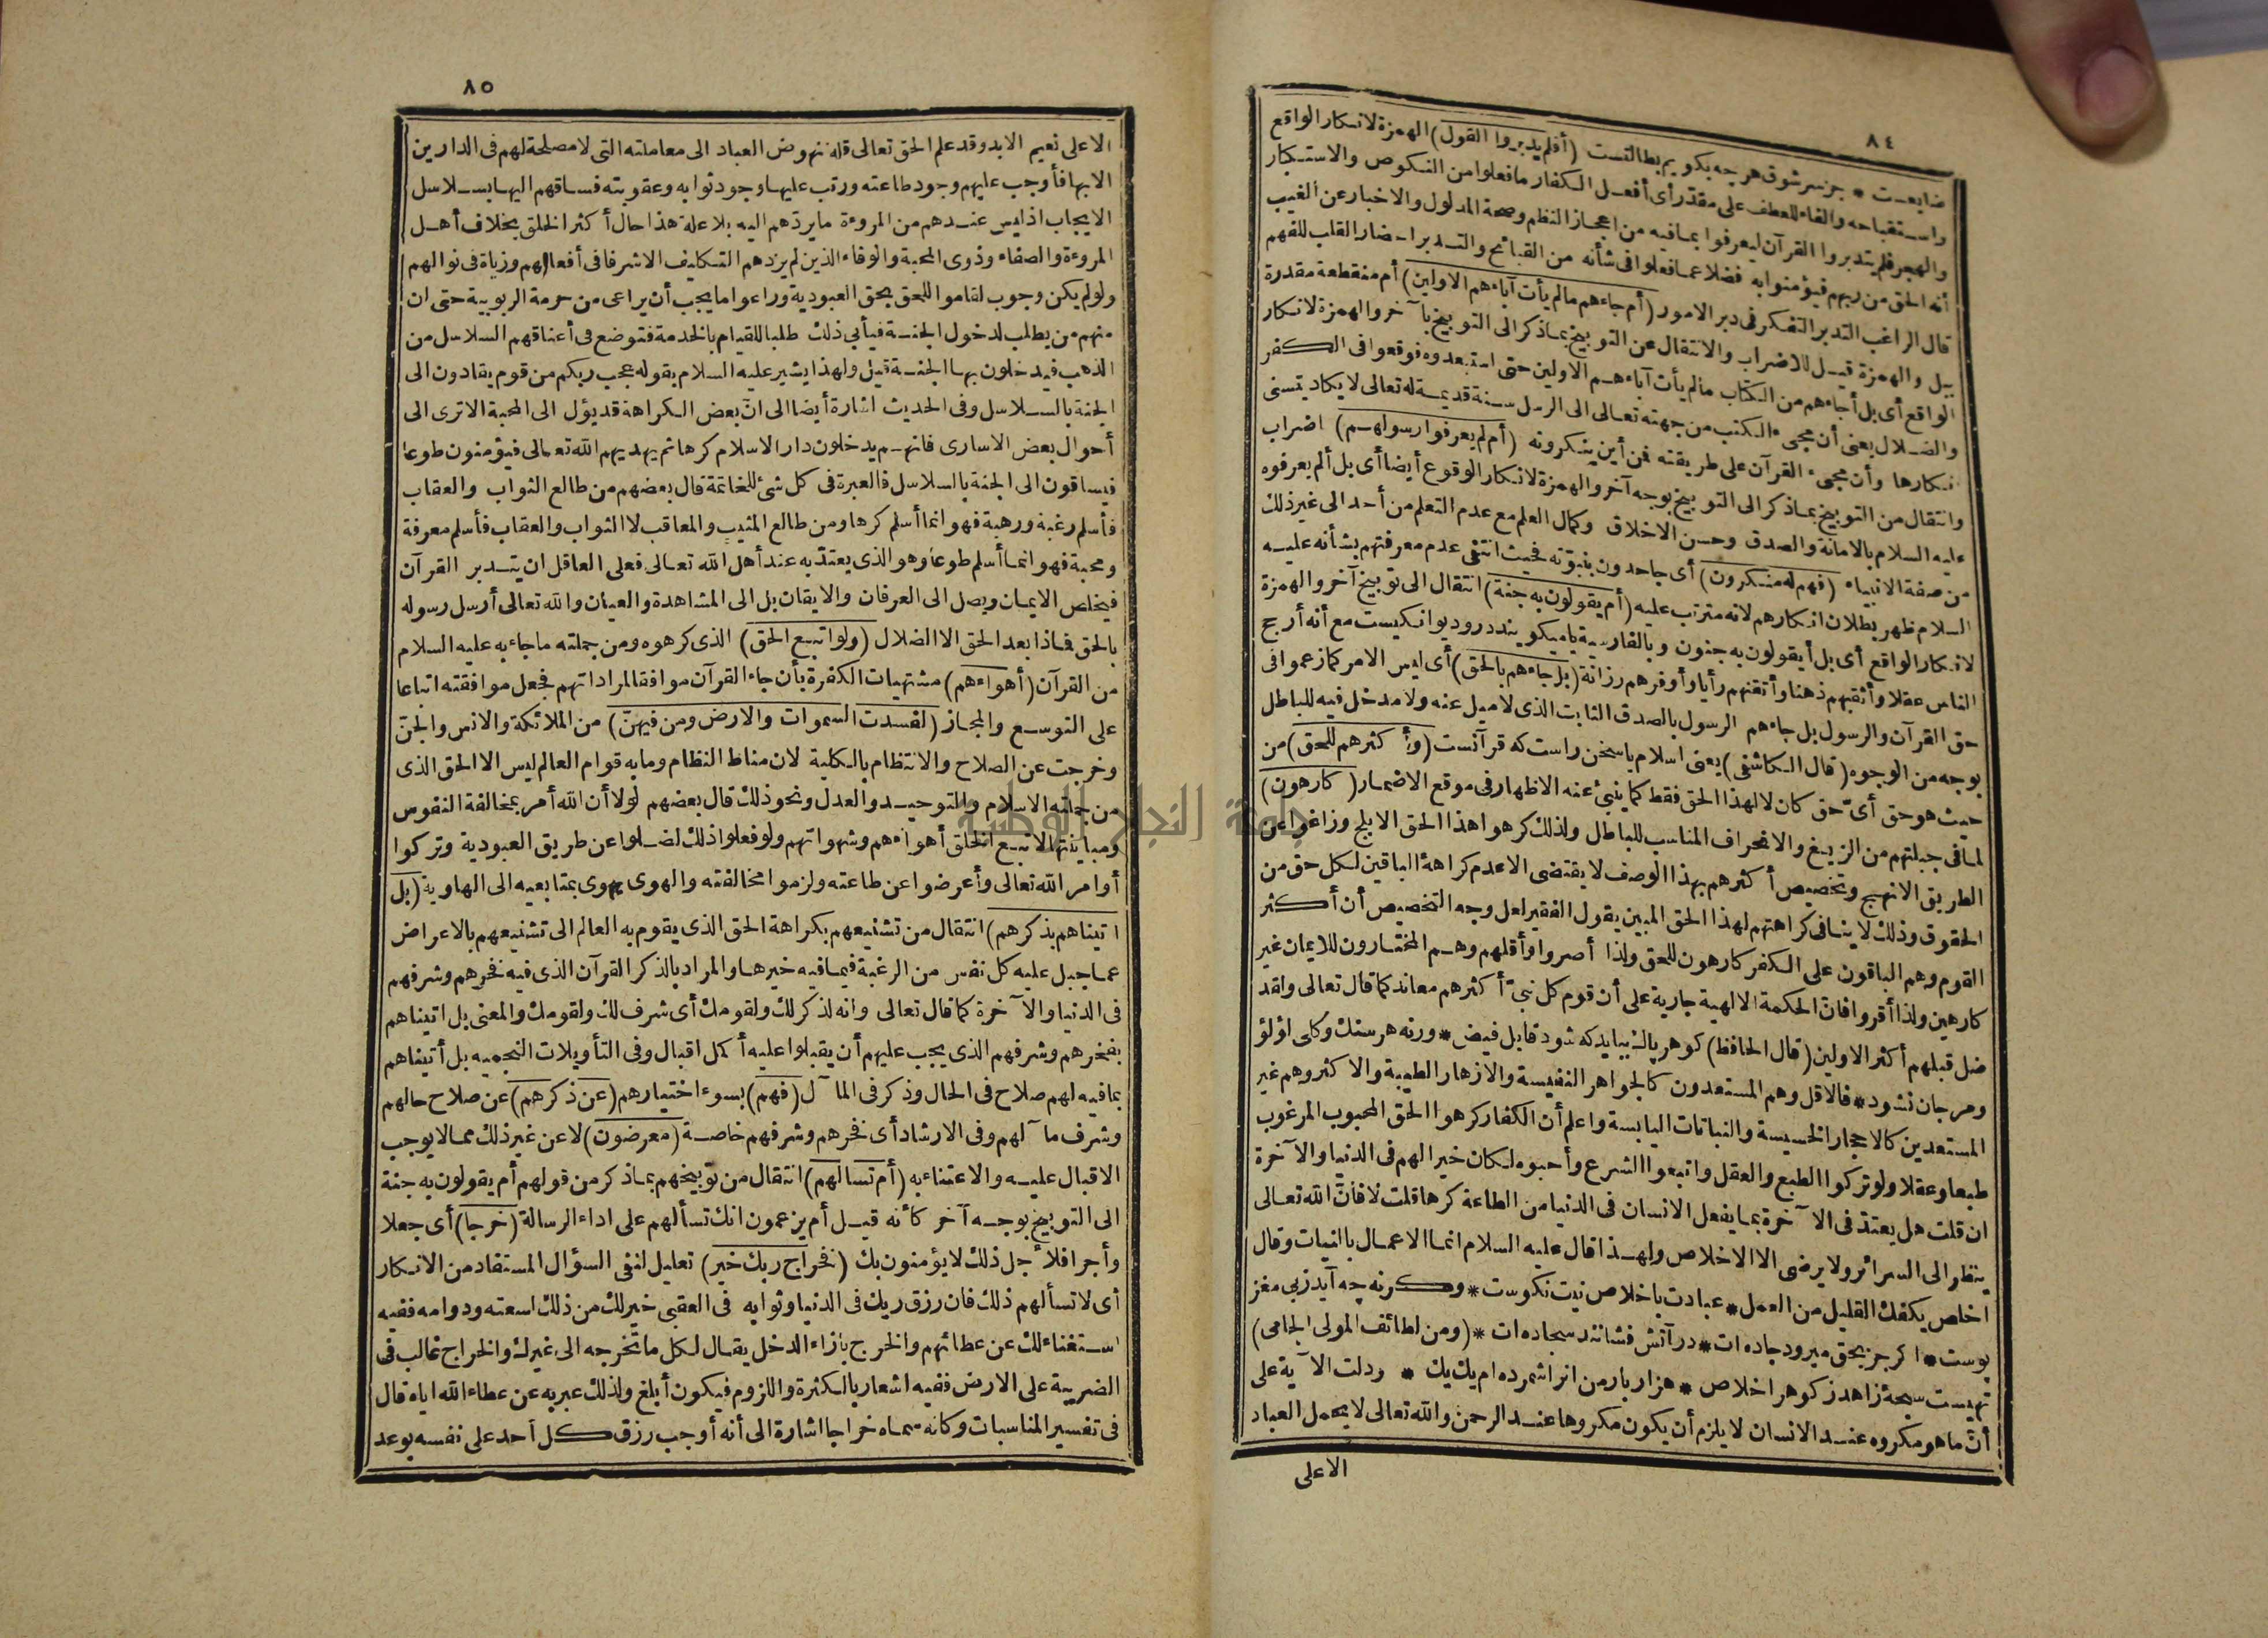 ٨٤
ضايعست * جز سر شوق هر چه بكويم بطالتست (أفلم يدبروا القول) الهمزة لانكار الواقع
واستقباحه والفاء للعطف على مقدر أى أفعل الكفار ما فعلوا من النكوص والاستكبار
والهجر فلم يتدبروا القرآن ليعرفوا بما فيه من اعجاز النظم وصحة المدلول والاخبار عن الغيب
أنه الحق من ربهم فيؤمنوا به فضلا عما فعلوا فى شأنه من القبائح والتدبر احضار القلب للفهم
قال الراغب التدبر التفكر فى دبر الامور (أم جاءهم مالم يأت آباءهم الاولين) أم منقطعة مقدرة
ببل والهمزة قيل للاضراب والانتقال عن التوبيخ بما ذكر الى التوبيخ بآخر والهمزة لانكار
الواقع أى بل أجاءهم من الكتاب مالم يأت آباءهم الاولين حتى استبعدوه فوقعوا فى الكفر
والضلال يعنى أن مجىء الكتب من جهته تعالى الى الرسل سنة قديمة له تعالى لا يكاد يتسنى
انكارها وأن مجىء القرآن على طريقته فمن أين ينكرونه (أم لم يعرفوا رسولهم) اضراب
وانتقال من التوبيخ بما ذكر الى التوبيخ بوجه آخر والهمزة لانكار الوقوع أيضا أى بل ألم يعرفوه
عليه السلام بالامانة والصدق وحسن الاخلاق وكمال العلم مع عدم التعلم من أحد الى غير ذلك
من صفة الانبياء (فهم له منكرون) أى جاحدون بنبوّته فحيث انتفى عدم معرفتهم بشأنه عليه
السلام ظهر بطلان انكارهم لانه مترتب عليه (أم يقولون به جنة) انتقال الى توبيخ آخر والهمزة
لانكار الواقع أى بل أيقولون به جنون وبالفارسية يا ميكويند درو ديوانكيست مع أنه أرجح
الناس عقلا وأثقبهم ذهنا وأتقنهم رأيا وأوفرهم رزانة (بل جاءهم بالحق) أى ليس الامر كما زعموا فى
حق القرآن والرسول بل جاءهم الرسول بالصدق الثابت الذى لا ميل عنه ولا مدخل فيه للباطل
بوجه من الوجوه (قال الكاشفى) يعنى اسلام يا سخن راست كه قرآنست (وأكثرهم للحق) من
حيث هو حق أىّ حق كان لا لهذا الحق فقط كما ينبئ عنه الاظهار فى موقع الاضمار (كارهون)
لما فى جبلتهم من الزيغ والانحراف المناسب للباطل ولذلك كرهوا هذا الحق الابلج وزاغوا عن
الطريق الانهج وتخصيص أكثرهم بهذا الوصف لا يقتضى الا عدم كراهة الباقين لكل حق من
الحقوق وذلك لا ينافى كراهتهم لهذا الحق المبين يقول الفقير لعل وجه التخصيص أن أكثر
القوم وهم الباقون على الكفر كارهون للحق ولذا أصروا وأقلهم وهم المختارون للايمان غير
كارهين ولذا أقروا فان الحكمة الالهية جارية على أن قوم كل نبىّ أكثرهم معاند كما قال تعالى ولقد
ضل قبلهم أكثر الاولين (قال الحافظ) كوهر پاك ببايد كه شود قابل فيض * ورنه هر سنك وكلى لؤلؤ
ومرجان نشود * فالاقل وهم المستعدون كالجواهر النفيسة والازهار الطيبة والاكثر وهم غير
المستعدين كالاحجار الخسيسة والنباتات اليابسة واعلم أن الكفار كرهوا الحق المحبوب المرغوب
طبعا وعقلا ولو تركوا الطبع والعقل واتبعوا الشرع وأحبوه لكان خيرا لهم فى الدنيا والآخرة
ان قلت هل يعتدّ فى الآخرة بما يفعل الانسان فى الدنيا من الطاعة كرها قلت لا فانّ الله تعالى
ينظر الى السرائر ولا يرضى الا الاخلاص ولهذا قال عليه السلام انما الاعمال بالنيات وقال
اخلص يكفك القليل من العمل * عبادت باخلاص نيت نكوست * وكرنه چه آيد زبى مغز
پوست * اكر جز بحق ميرود جاده ات * در آتش فشانند سجاده ات * (ومن لطائف المولى الجامى)
تهيست سبحهٔ زاهد ز كوهر اخلاص * هزار بار من انرا شمرده ام يك يك * ودلت الآية على
أنّ ما هو مكروه عند الانسان لا يلزم أن يكون مكروها عند الرحمن والله تعالى لا يحمل العباد
الاعلى
٨٥
الا على نعيم الابد وقد علم الحق تعالى قلة نهوض العباد الى معاملته التى لا مصلحة لهم فى الدارين
الا بها فأوجب عليهم وجود طاعته ورتب عليها وجود ثوابه وعقوبته فساقهم اليها بسلاسل
الايجاب اذ ليس عندهم من المروءة ما يردّهم اليه بلا علة هذا حال أكثر الخلق بخلاف أهل
المروءة والصفاء وذوى المحبة والوفاء الذين لم يزدهم التكليف الا شرفا فى أفعالهم وزيادة فى نوالهم
ولو لم يكن وجوب لقاموا للحق بحق العبودية وراعوا ما يجب أن يراعى من حرمة الربوبية حتى ان
منهم من يطلب لدخول الجنة فيأبى ذلك طلبا للقيام بالخدمة فتوضع فى أعناقهم السلاسل من
الذهب فيدخلون بها الجنة قيل ولهذا يشير عليه السلام بقوله عجب ربكم من قوم يقادون الى
الجنة بالسلاسل وفى الحديث اشارة أيضا الى انّ بعض الكراهة قد يؤل الى المحبة الا ترى الى
أحوال بعض الاسارى فانهم يدخلون دار الاسلام كرها ثم يهديهم الله تعالى فيؤمنون طوعا
فيساقون الى الجنة بالسلاسل فالعبرة فى كل شئ للخاتمة قال بعضهم من طالع الثواب والعقاب
فأسلم رغبة ورهبة فهو انما أسلم كرها ومن طالع المثيب والمعاقب لا الثواب والعقاب فأسلم معرفة
ومحبة فهو انما أسلم طوعا وهو الذى يعتدّ به عند أهل الله تعالى فعلى العاقل ان يتدبر القرآن
فيخلص الايمان ويصل الى العرفان والايقان بل الى المشاهدة والعيان والله تعالى أرسل رسوله
بالحق فماذا بعد الحق الا الضلال (ولو اتبع الحق) الذى كرهوه ومن جملته ما جاء به عليه السلام
من القرآن (أهواءهم) مشتهيات الكفرة بأن جاء القرآن موافقا لمراداتهم فجعل موافقته اتباعا
على التوسع والمجاز (لفسدت السموات والارض ومن فيهنّ) من الملائكة والانس والجنّ
وخرجت عن الصلاح والانتظام بالكلية لان مناط النظام وما به قوام العالم ليس الا الحق الذى
من جملته الاسلام والتوحيد والعدل ونحو ذلك قال بعضهم لولا أن الله أمر بمخالفة النفوس
ومباينتها لاتبع الخلق أهواءهم وشهواتهم ولو فعلوا ذلك لضلوا عن طريق العبودية وتركوا
أوامر الله تعالى وأعرضوا عن طاعته ولزموا مخالفته والهوى يهوى بمتابعيه الى الهاوية (بل
اتيناهم بذكرهم) انتقال من تشنيعهم بكراهة الحق الذى يقوم به العالم الى تشنيعهم بالاعراض
عما جبل عليه كل نفس من الرغبة فيما فيه خيرها والمراد بالذكر القرآن الذى فيه فخرهم وشرفهم
فى الدنيا والآخرة كما قال تعالى وانه لذكر لك ولقومك أى شرف لك ولقومك والمعنى بل اتيناهم
بفخرهم وشرفهم الذى يجب عليهم أن يقبلوا عليه أكمل اقبال وفى التأويلات النجميه بل أتيناهم
بما فيه لهم صلاح فى الحال وذكر فى المآل (فهم) بسوء اختيارهم (عن ذكرهم) عن صلاح حالهم
وشرف مآلهم وفى الارشاد أى فخرهم وشرفهم خاصة (معرضون) لا عن غير ذلك مما لا يوجب
الاقبال عليه والاعتناء به (أم تسألهم) انتقال من توبيخهم بما ذكر من قولهم أم يقولون به جنة
الى التوبيخ بوجه آخر كأنه قيل أم يزعمون انك تسألهم على اداء الرسالة (خرجا) أى جعلا
وأجرا فلأجل ذلك لا يؤمنون بك (فخراج ربك خير) تعليل لنفى السؤال المستفاد من الانكار
أى لا تسألهم ذلك فان رزق ربك فى الدنيا وثوابه فى العقبى خير لك من ذلك لسعته ودوامه ففيه
استغناء لك عن عطائهم والخرج بازاء الدخل يقال لكل ما تخرجه الى غيرك والخراج غالب فى
الضريبة على الارض ففيه اشعار بالكثرة واللزوم فيكون أبلغ ولذلك عبر به عن عطاء الله اياه قال
فى تفسير المناسبات وكانه سماه خراجا اشارة الى أنه أوجب رزق كل أحد على نفسه بوعد
جامعة النجاح الوطنية